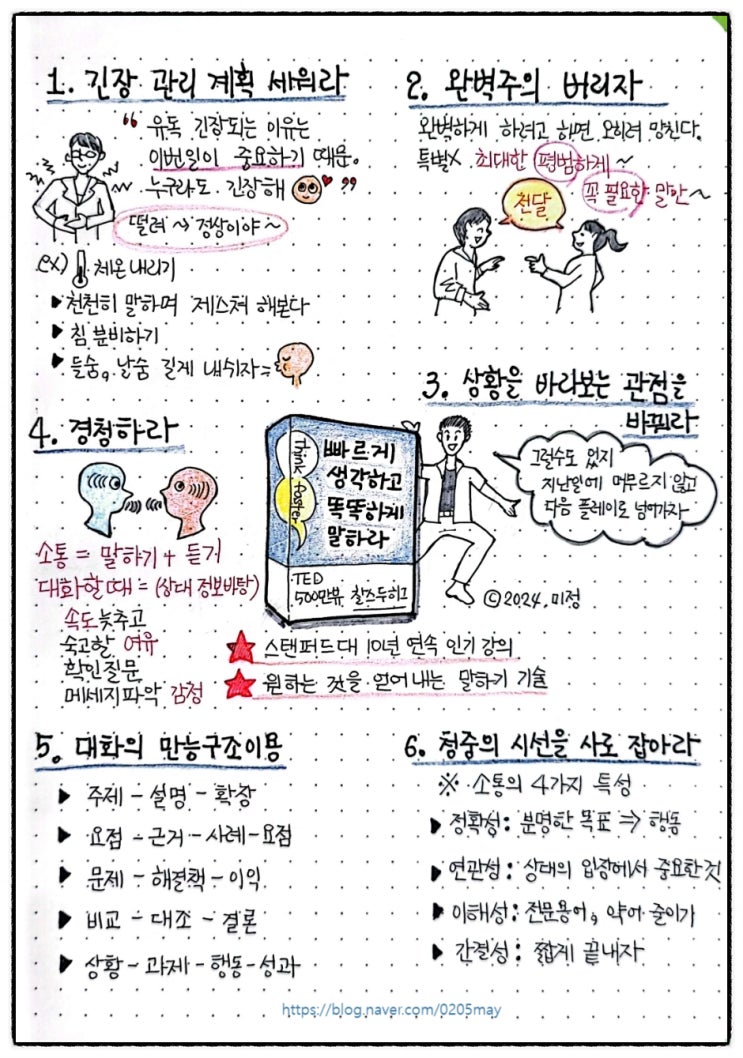 1. 긴장 관리 계획 세워라
“ 유독 긴장되는 이유는
이번일이 중요하기 때문.
누구라도 긴장해 ”
떨려 ~> 정상이야~
ex) 체온내리기
▶천천히 말하며 제스쳐 해본다
▶침 분비하기
▶들숨, 날숨 길게 내쉬자=
2. 완벽주의 버리자
완벽하게 하려고 하면 오히려 망친다.
특별X 최대한 평범하게~
꼭 필요한 말만~
전달
3. 상황을 바라보는 관점을
바꿔라
그럴수도 있지
지난일에 머무르지 않고
다음 플레이로 넘어가자
4. 경청하라
소통 = 말하기 + 듣기
대화할때 = (상대 정보바탕)
속도늦추고
숙고할 여유
확인질문
메세지파악 감정
Think faster
빠르게
생각하고
똑똑하게
말하라
TED
500만뷰 찰스두히그
©2024. 미정
★ 스탠퍼드대 10년 연속 인기 강의
★ 원하는 것을 얻어내는 말하기 기술
5. 대화의 만능구조이용
▶ 주제 - 설명 - 확장
▶ 요점 - 근거 - 사례 - 요점
▶ 문제 - 해결책 - 이익
▶ 비교 - 대조 - 결론
▶ 상황 - 과제 - 행동 - 성과
6. 청중의 시선을 사로 잡아라
※ 소통의 4가지 특성
▶정확성: 분명한 목표 => 행동
▶연관성: 상대의 입장에서 중요한것
▶이해성: 전문용어, 약어 줄이기
▶간결성: 짧게 끝내자
https://blog.naver.com/0205may